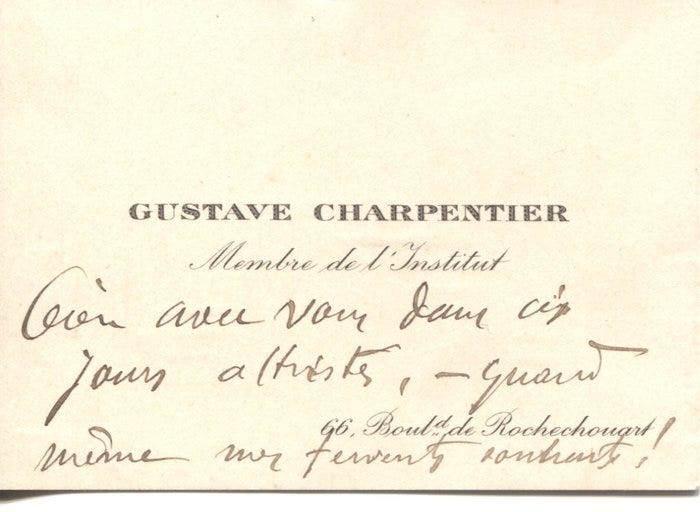 GUSTAVE CHARPENTIER
Membre de l'Institut
Bien avec vous dans ces
jours attristés, – quand
66, Boul.d de Rochechouart
même mes fervents souhaits!